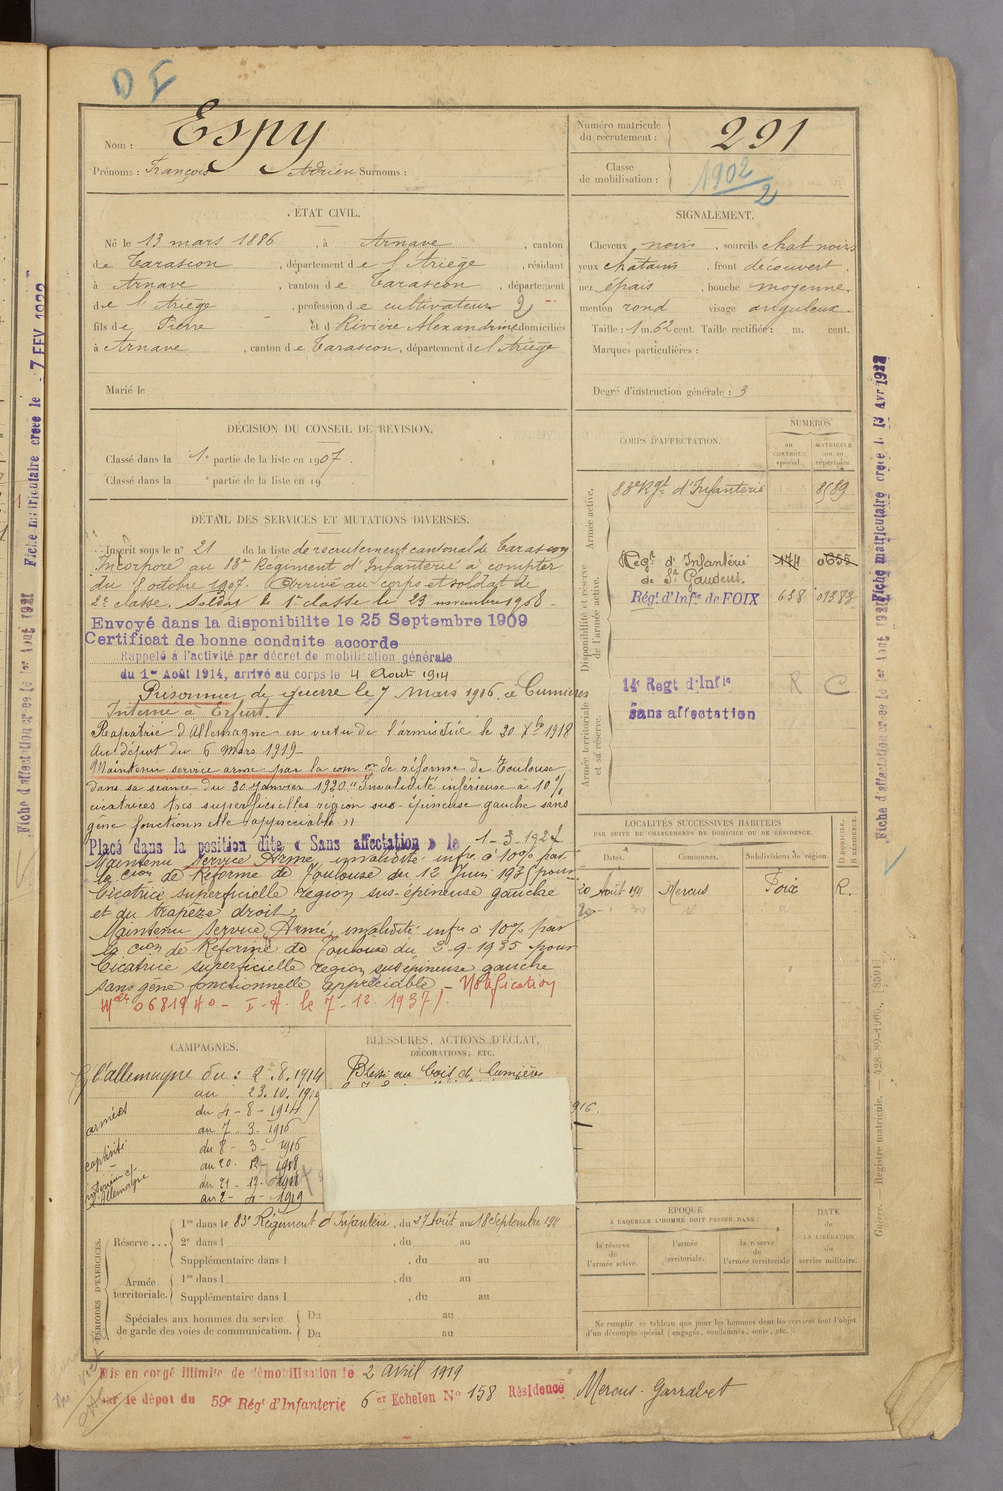 DI
Nom : Espy
Prénoms : François Adrien Surnoms :
Numéro matricule du recrutement : 291
Classe de mobilisation : 1902
2
ÉTAT CIVIL.
Né le 13 mars 1886, à Arnave, canton
de Tarascon, département de l'Ariège, résidant
à Arnave, canton de Tarascon, département
de l'Ariège, profession de cultivateur
fils de Pierre et d Rivière Alexandrine domiciliés
à Arnave, canton de Tarascon, département de l'Ariège
Marié le
SIGNALEMENT.
Cheveux noirs, sourcils chat noirs
yeux chatains, front découvert,
nez épais, bouche moyenne
menton rond visage anguleux
Taille : 1 m. 62 cent. Taille rectifiée : m. cent.
Marques particulières :
Degré d'instruction générale : 3
DÉCISION DU CONSEIL DE REVISION.
Classé dans la 1e partie de la liste en 1907.
Classé dans la e partie de la liste en 19
DÉTAIL DES SERVICES ET MUTATIONS DIVERSES.
Inscrit sous le n° 21 de la liste de recrutement cantonal de Tarascon
Incorporé au 83e Régiment d'Infanterie à compter
du 8 octobre 1907. Arrivé au corps et soldat de
2e classe, Soldat de 1e classe le 23 novembre 1908
Envoyé dans la disponibilite le 25 Septembre 1909
Certificat de bonne conduite accorde
Rappelé à l'activité par décret de mobilisation générale
du 1er Août 1914, arrivé au corps le 4 Aout 1914
Prisonnier de guerre le 7 mars 1916 à Cumières
Interné à Erfurt.
Rapatrié d'Allemagne en vertu de l'armistice le 20 Xbre 1918
Au dépôt du 6 mars 1919
Maintenu service armé par la com on de réforme de Toulouse
dans sa séance du 30 janvier 1920. "Invalidité inférieure à 10%
cicatrices très superficielles région sus-épineuse gauche sans
gêne fonctionnelle appréciable"
Placé dans la position dite « Sans affectation » le 1-3-1927
Maintenu Service Armé, invalidité infre à 10% par
la Cion de Réforme de Toulouse du 12 Juin 193 pour
Cicatrice superficielle région sus-épineuse gauche
et du trapèze droit,
Maintenu Service Armé, invalidité infre à 10% par
la Cion de Réforme de Toulouse du 2-9-1935 pour
Cicatrice superficielle région sus épineuse gauche
sans gêne fonctionnelle appréciable - Notification
Melle 06819 40 - I-A. le 7-12-1937/-
CORPS D'AFFECTATION.
NUMÉROS
au CONTRÔLE spécial.
MATRICULE ou au répertoire.
Armée active.
83e Rgt d'Infanterie 8589
Disponibilité et réserve de l'armée active.
Regt d'Infanterie de St Gaudens. 174 0655
Régt d'Infie de FOIX 638 01383
Armée territoriale et sa réserve.
14e Regt d'Infie R C
Sans affectation
LOCALITÉS SUCCESSIVES HABITÉES
PAR SUITE DE CHANGEMENTS DE DOMICILE OU DE RÉSIDENCE.
Dates. Communes. Subdivisions de région. D DOMICILE. R RÉSIDENCE.
20 Août 1911 Mercus Foix R.
CAMPAGNES.
C/ l'allemagne du : 2.8.1914
au 23.10.1919
armées
du 4-8-1914
au 7-3-1916
captivité
du 8-3-1916
au 20-12-1918
intérieur c/ l'Allemagne
du 21-12-1918
au 2-4-1919
BLESSURES, ACTIONS D'ÉCLAT,
DÉCORATIONS, ETC.
Blessé au bois de Cumières
916.
PÉRIODES D'EXERCICES.
Réserve...
1re dans le 83e Régiment d'Infanterie, du 27 Août au 18 Septembre 1911
2e dans l , du au
Supplémentaire dans l , du au
Armée territoriale.
1re dans l , du au
Supplémentaire dans l , du au
Spéciales aux hommes du service de garde des voies de communication.
Du au
Du au
ÉPOQUE
À LAQUELLE L'HOMME DOIT PASSER DANS :
la réserve de l'armée active.
l'armée territoriale.
la réserve de l'armée territoriale
DATE de LA LIBÉRATION du service militaire.
Ne remplir ce tableau que pour les hommes dont les services font l'objet
d'un décompte spécial (engagés, condamnés, omis, etc.).
Mis en congé illimité de démobilisation le 2 Avril 1919
par le dépôt du 59e Régt d'Infanterie 6er Echelon N° 158 Résidence Mercus-Garrabet
Fiche matriculaire créée le 7 FEV 1922
Fiche d'affectation créée le 1er Août 1921
Fiche matriculaire créée le 13 Avr 1922
Fiche d'affectation créée le 1er Août 1921
Guerre. — Registre matricule. — 428-89-1906. [8591]